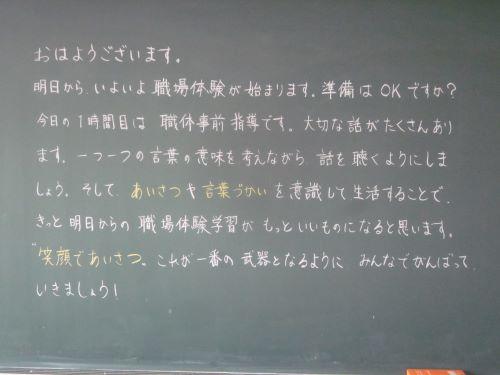 おはようございます。
明日から、いよいよ職場体験が始まります。準備はOKですか?
今日の1時間目は職体事前指導です。大切な話がたくさんあり
ます。一つ一つの言葉の意味を考えながら、話を聴くようにしま
しょう。そして、あいさつや言葉づかいを意識して生活することで、
きっと明日からの職場体験学習がもっといいものになると思います。
"笑顔であいさつ。これが一番の武器となるようにみんなでがんばって
いきましょう!